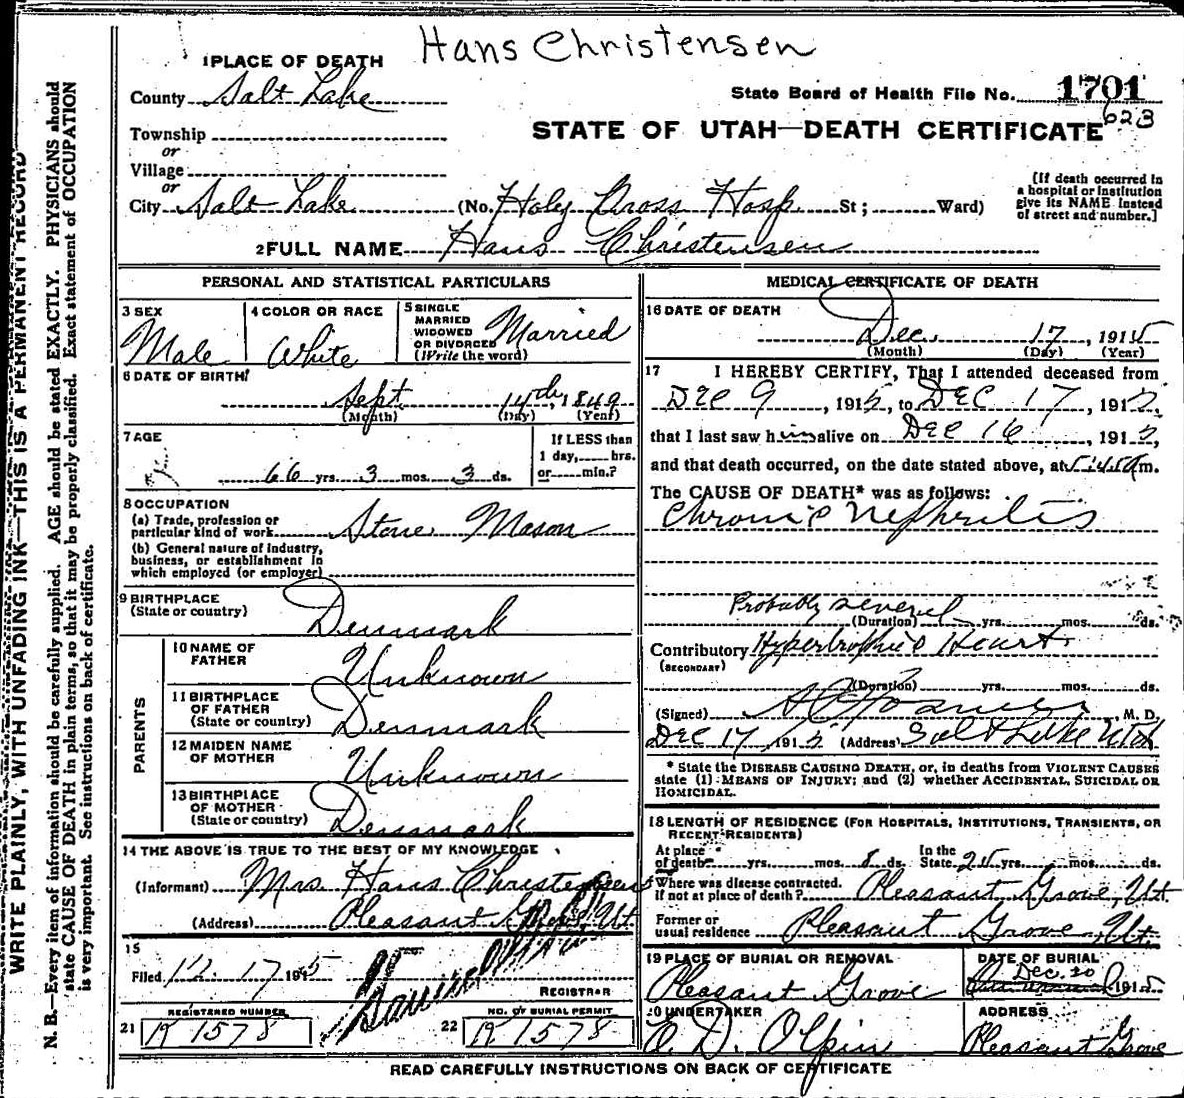 Hans Christensen
1 PLACE OF DEATH
County Salt Lake
State Board of Health File No. 1701
623
Township
STATE OF UTAH—DEATH CERTIFICATE
or
Village
or
City Salt Lake (No. Holy Cross Hosp. St; Ward)
(If death occurred in
a hospital or institution
give its NAME instead
of street and number.]
2 FULL NAME Hans Christensen
PERSONAL AND STATISTICAL PARTICULARS
3 SEX
Male
4 COLOR OR RACE
White
5 SINGLE
MARRIED
WIDOWED
OR DIVORCED
(Write the word)
Married
6 DATE OF BIRTH
Sept. 14th, 1849
(Month) (Day) (Year)
7 AGE
66 yrs. 3 mos. 3 ds.
If LESS than
1 day, hrs.
or min.?
8 OCCUPATION
(a) Trade, profession or
particular kind of work Stone Mason
(b) General nature of industry,
business, or establishment in
which employed (or employer)
9 BIRTHPLACE
(State or country) Denmark
PARENTS
10 NAME OF
FATHER Unknown
11 BIRTHPLACE
OF FATHER
(State or country) Denmark
12 MAIDEN NAME
OF MOTHER Unknown
13 BIRTHPLACE
OF MOTHER
(State or country) Denmark
14 THE ABOVE IS TRUE TO THE BEST OF MY KNOWLEDGE
(Informant) Mrs Hans Christensen
(Address) Pleasant Grove, Ut.
15
Filed 12 17 1915
REGISTRAR
REGISTERED NUMBER
21 R 1578
NO. OF BURIAL PERMIT
22 R 1578
MEDICAL CERTIFICATE OF DEATH
16 DATE OF DEATH
Dec. 17, 1915
(Month) (Day) (Year)
17 I HEREBY CERTIFY, That I attended deceased from
Dec 9, 1915, to Dec 17, 1915,
that I last saw him alive on Dec 16, 1915,
and that death occurred, on the date stated above, at 5:45 a m.
The CAUSE OF DEATH* was as follows:
Chronic Nephritis
Probably several
(Duration) yrs. mos. ds.
Contributory Hypertrophied Heart
(SECONDARY)
(Duration) yrs. mos. ds.
(Signed) M. D.
Dec 17 1915 (Address) Salt Lake Utah
* State the DISEASE CAUSING DEATH, or, in deaths from VIOLENT CAUSES
state (1) MEANS OF INJURY; and (2) whether ACCIDENTAL, SUICIDAL OR
HOMICIDAL.
18 LENGTH OF RESIDENCE (FOR HOSPITALS, INSTITUTIONS, TRANSIENTS, OR
RECENT RESIDENTS)
At place
of death yrs. mos. 8 ds.
In the
State 25 yrs. mos. ds.
Where was disease contracted.
if not at place of death? Pleasant Grove, Ut.
Former or
usual residence Pleasant Grove, Ut.
19 PLACE OF BURIAL OR REMOVAL
Pleasant Grove
DATE OF BURIAL
Dec. 20
1915
20 UNDERTAKER
O. D. Olpin
ADDRESS
Pleasant Grove
READ CAREFULLY INSTRUCTIONS ON BACK OF CERTIFICATE
WRITE PLAINLY, WITH UNFADING INK—THIS IS A PERMANENT RECORD
N. B.—Every item of information should be carefully supplied. AGE should be stated EXACTLY. PHYSICIANS should
state CAUSE OF DEATH in plain terms, so that it may be properly classified. Exact statement of OCCUPATION
is very important. See instructions on back of certificate.